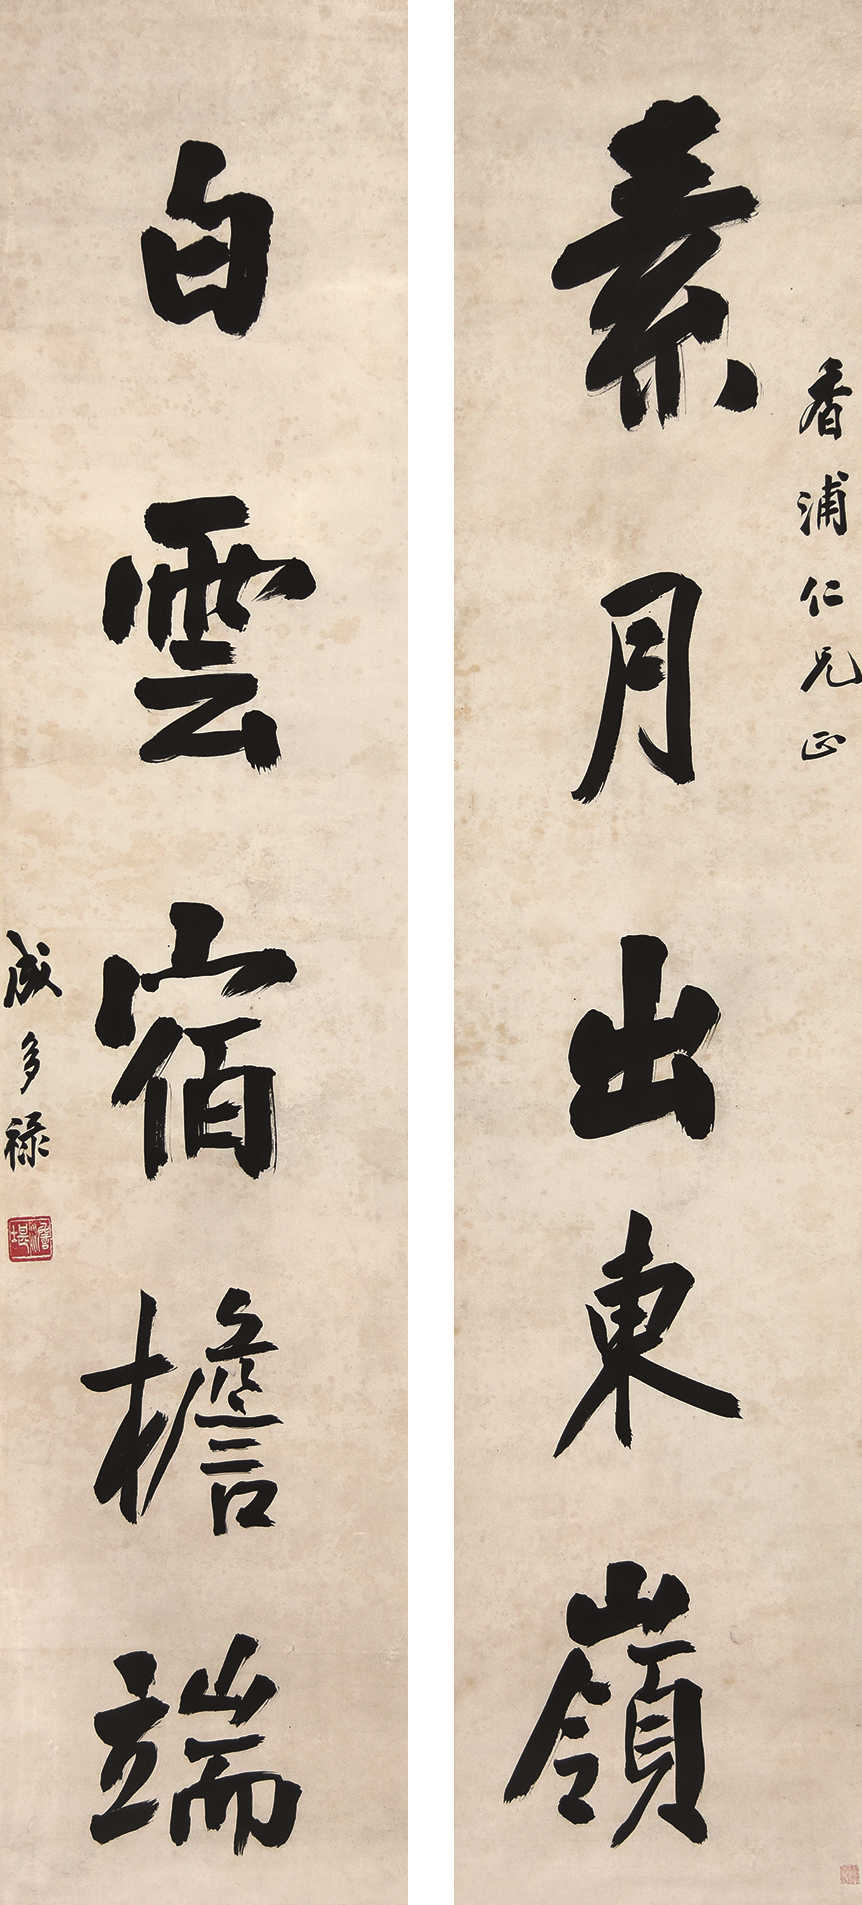 香浦仁兄正
素月出東嶺
白雲宿檐端
成多禄
澹堪